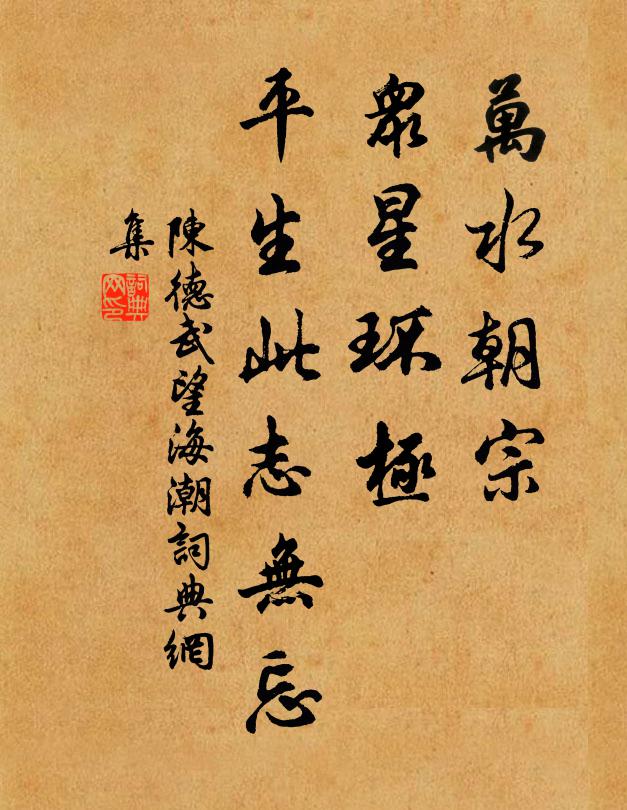 萬水朝宗
眾星环極
平生此志無忘
陳德武望海潮詞典網
集
詞典
网印